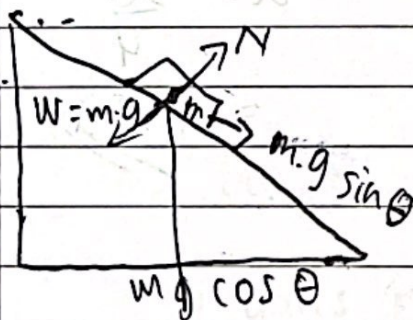 N
W = m.g
m
m.g sinθ
mg cos θ